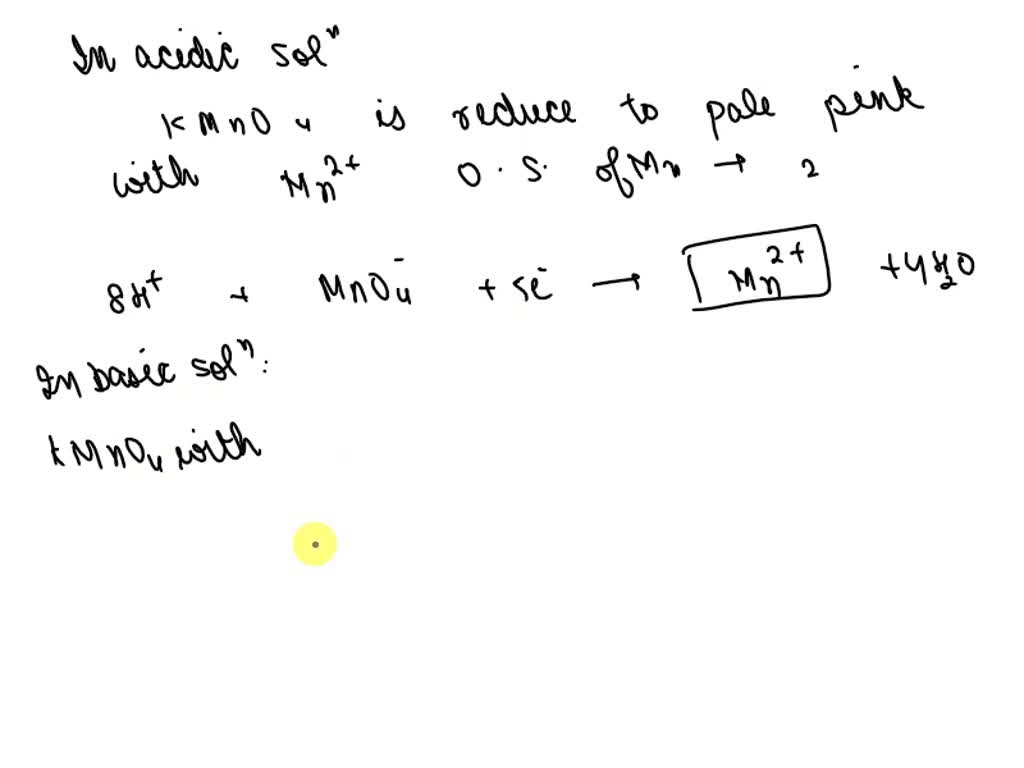 In acidic solⁿ
KMnO₄ is reduce to pale pink
with Mn²⁺ O.S. of Mn → 2
8H⁺ + MnO₄⁻ + 5e⁻ → Mn²⁺ + 4H₂O
In basic solⁿ:
KMnO₄ with